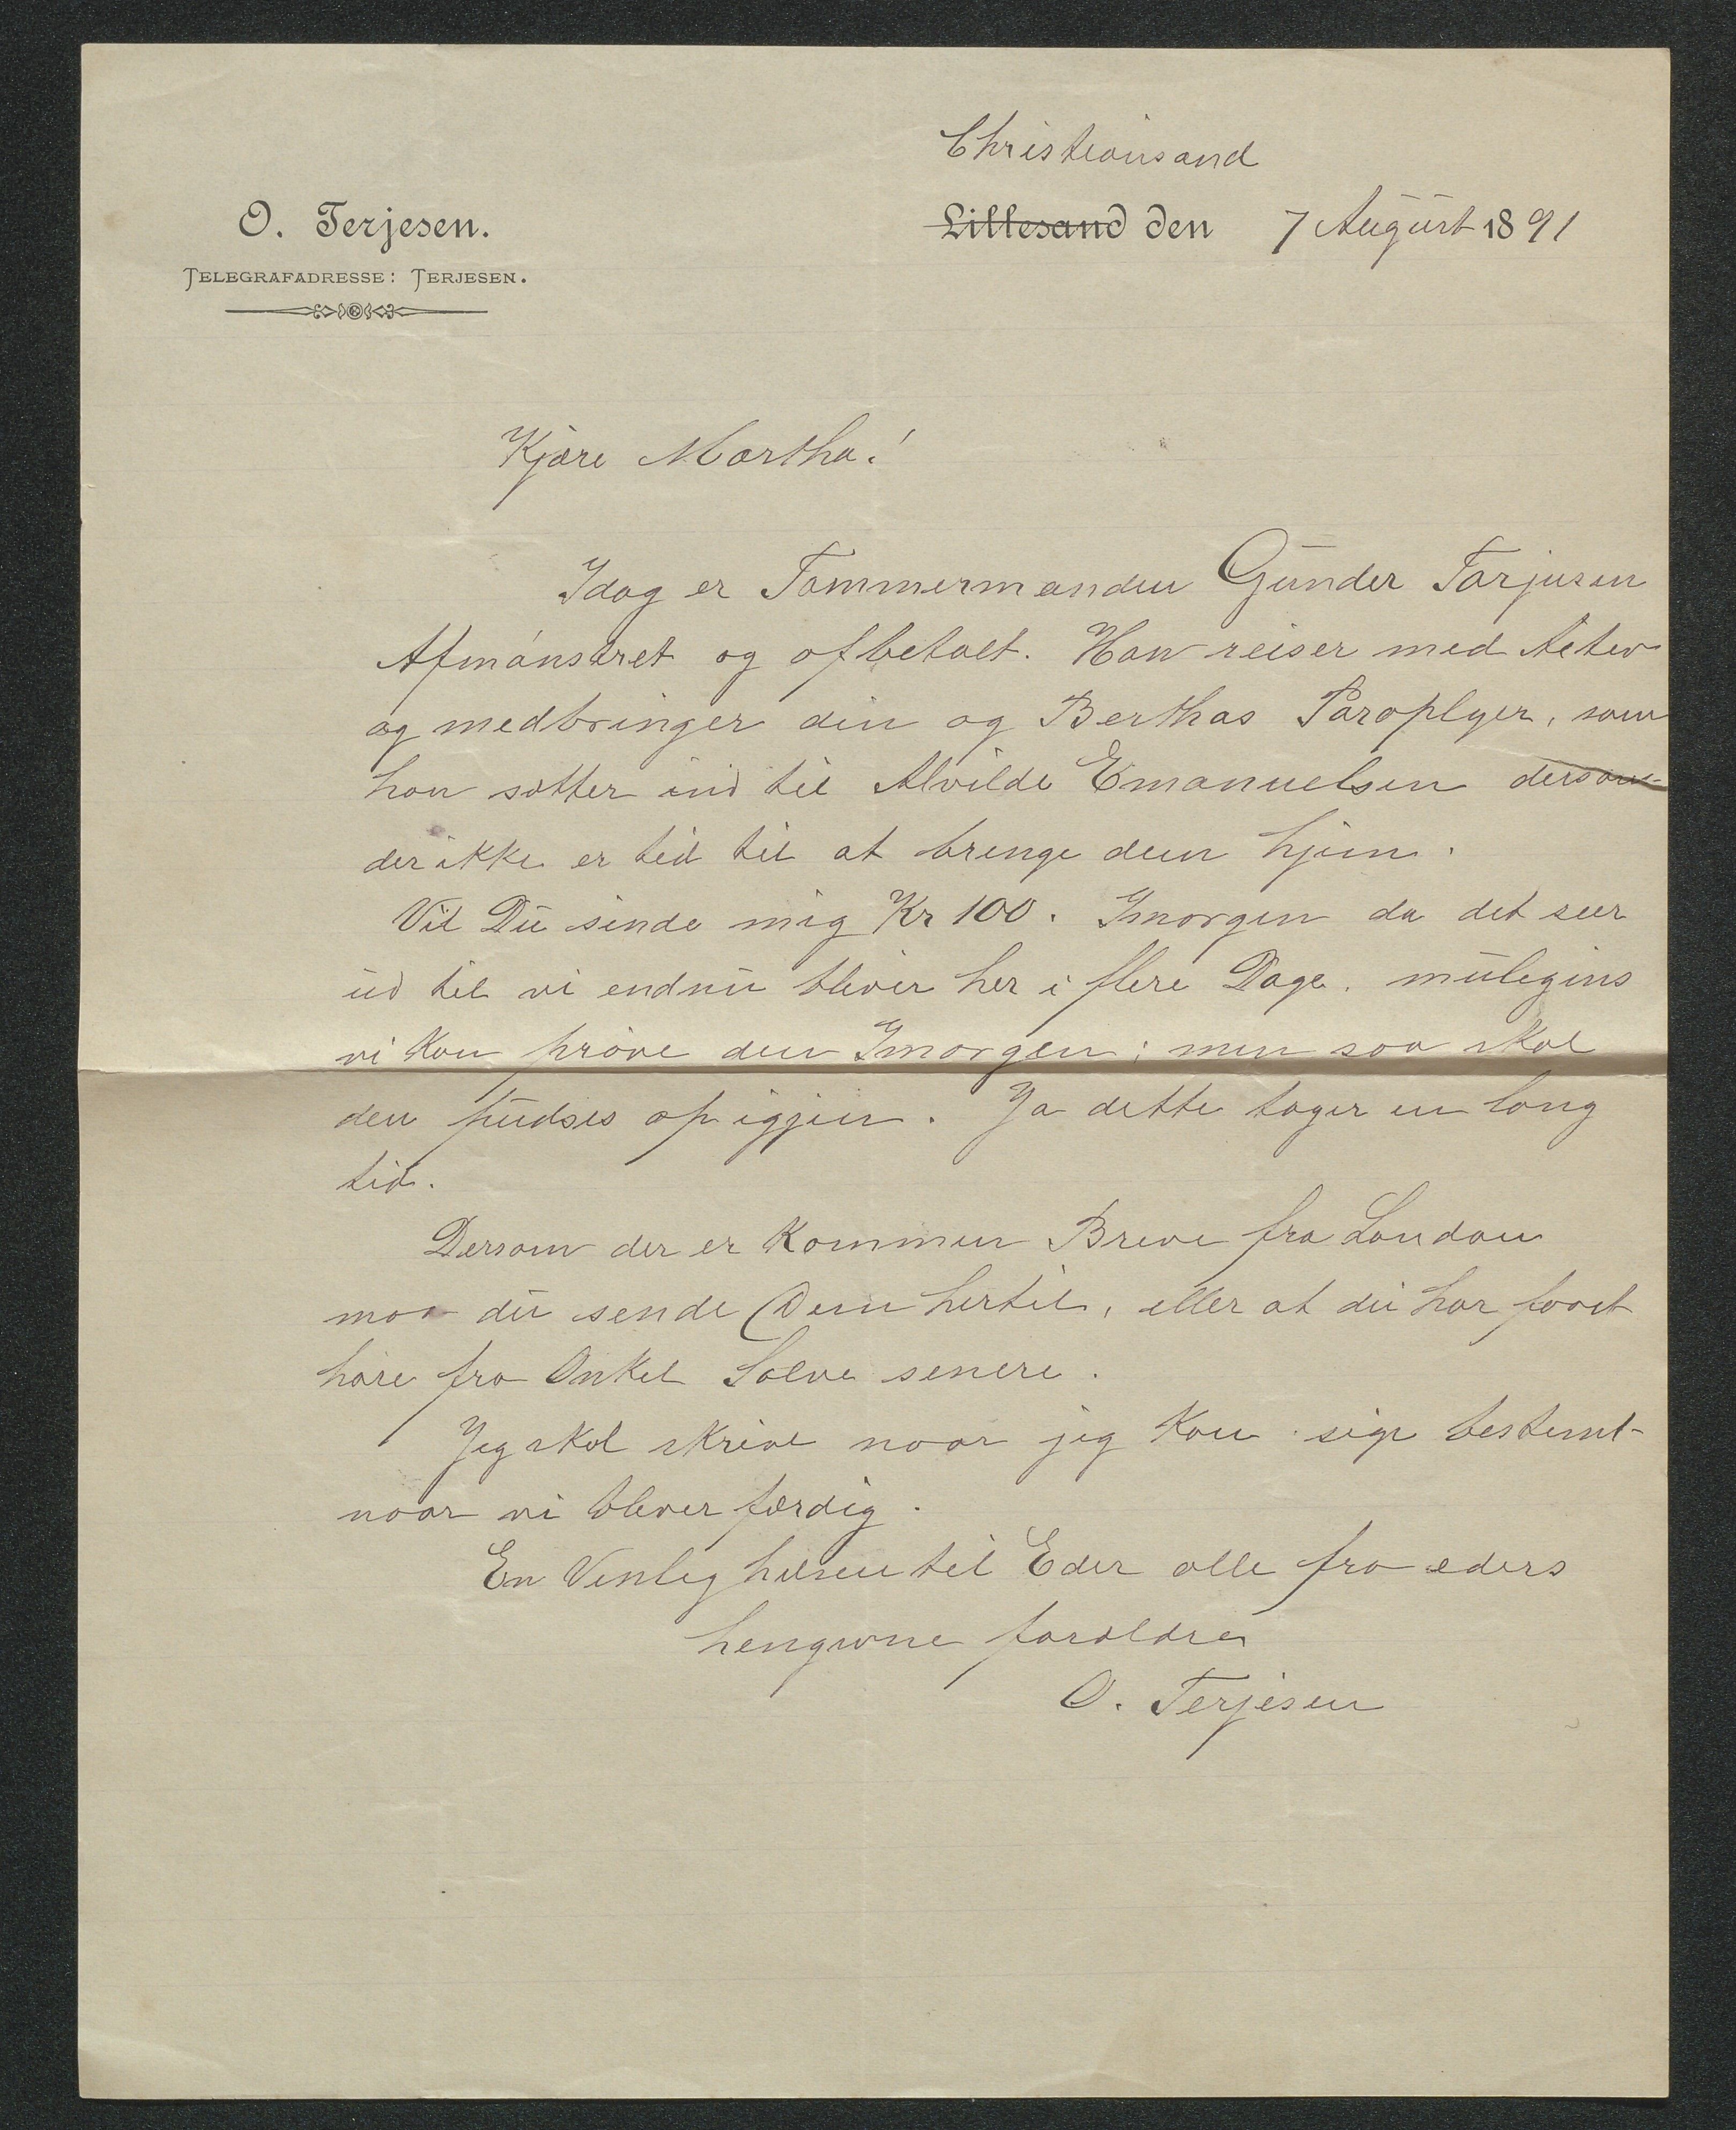 Christiansand
O. Terjesen.
Lillesand den 7 August 1891
TELEGRAFADRESSE: TERJESEN.
Kjære Martha!
Idag er Tømmermanden Gunder Tarjusen
Afmønstret og afbetalt. Han reiser med
og medbringer din og Berthas Paroplyer, som
han sætter ind til Alvilde Emanuelsen dersom
der ikke er tid til at bringe dem hjem.
Vil Du sende mig Kr 100. Imorgen da det seer
ud til vi endnu bliver her i flere Dage. muligins
vi kan prøve den Imorgen; men saa skal
den pudses op igjen. Ja dette tager en lang
tid.
Dersom der er kommen Breve fra London
maa du sende Dem hertil, eller at du har faaet
høre fra Onkel Salve senere.
Jeg skal skrive naar jeg kan sige bestemt
naar vi bliver færdig.
En Venlig hilsen til Eder alle fra eders
hengivne forældre
O. Terjesen